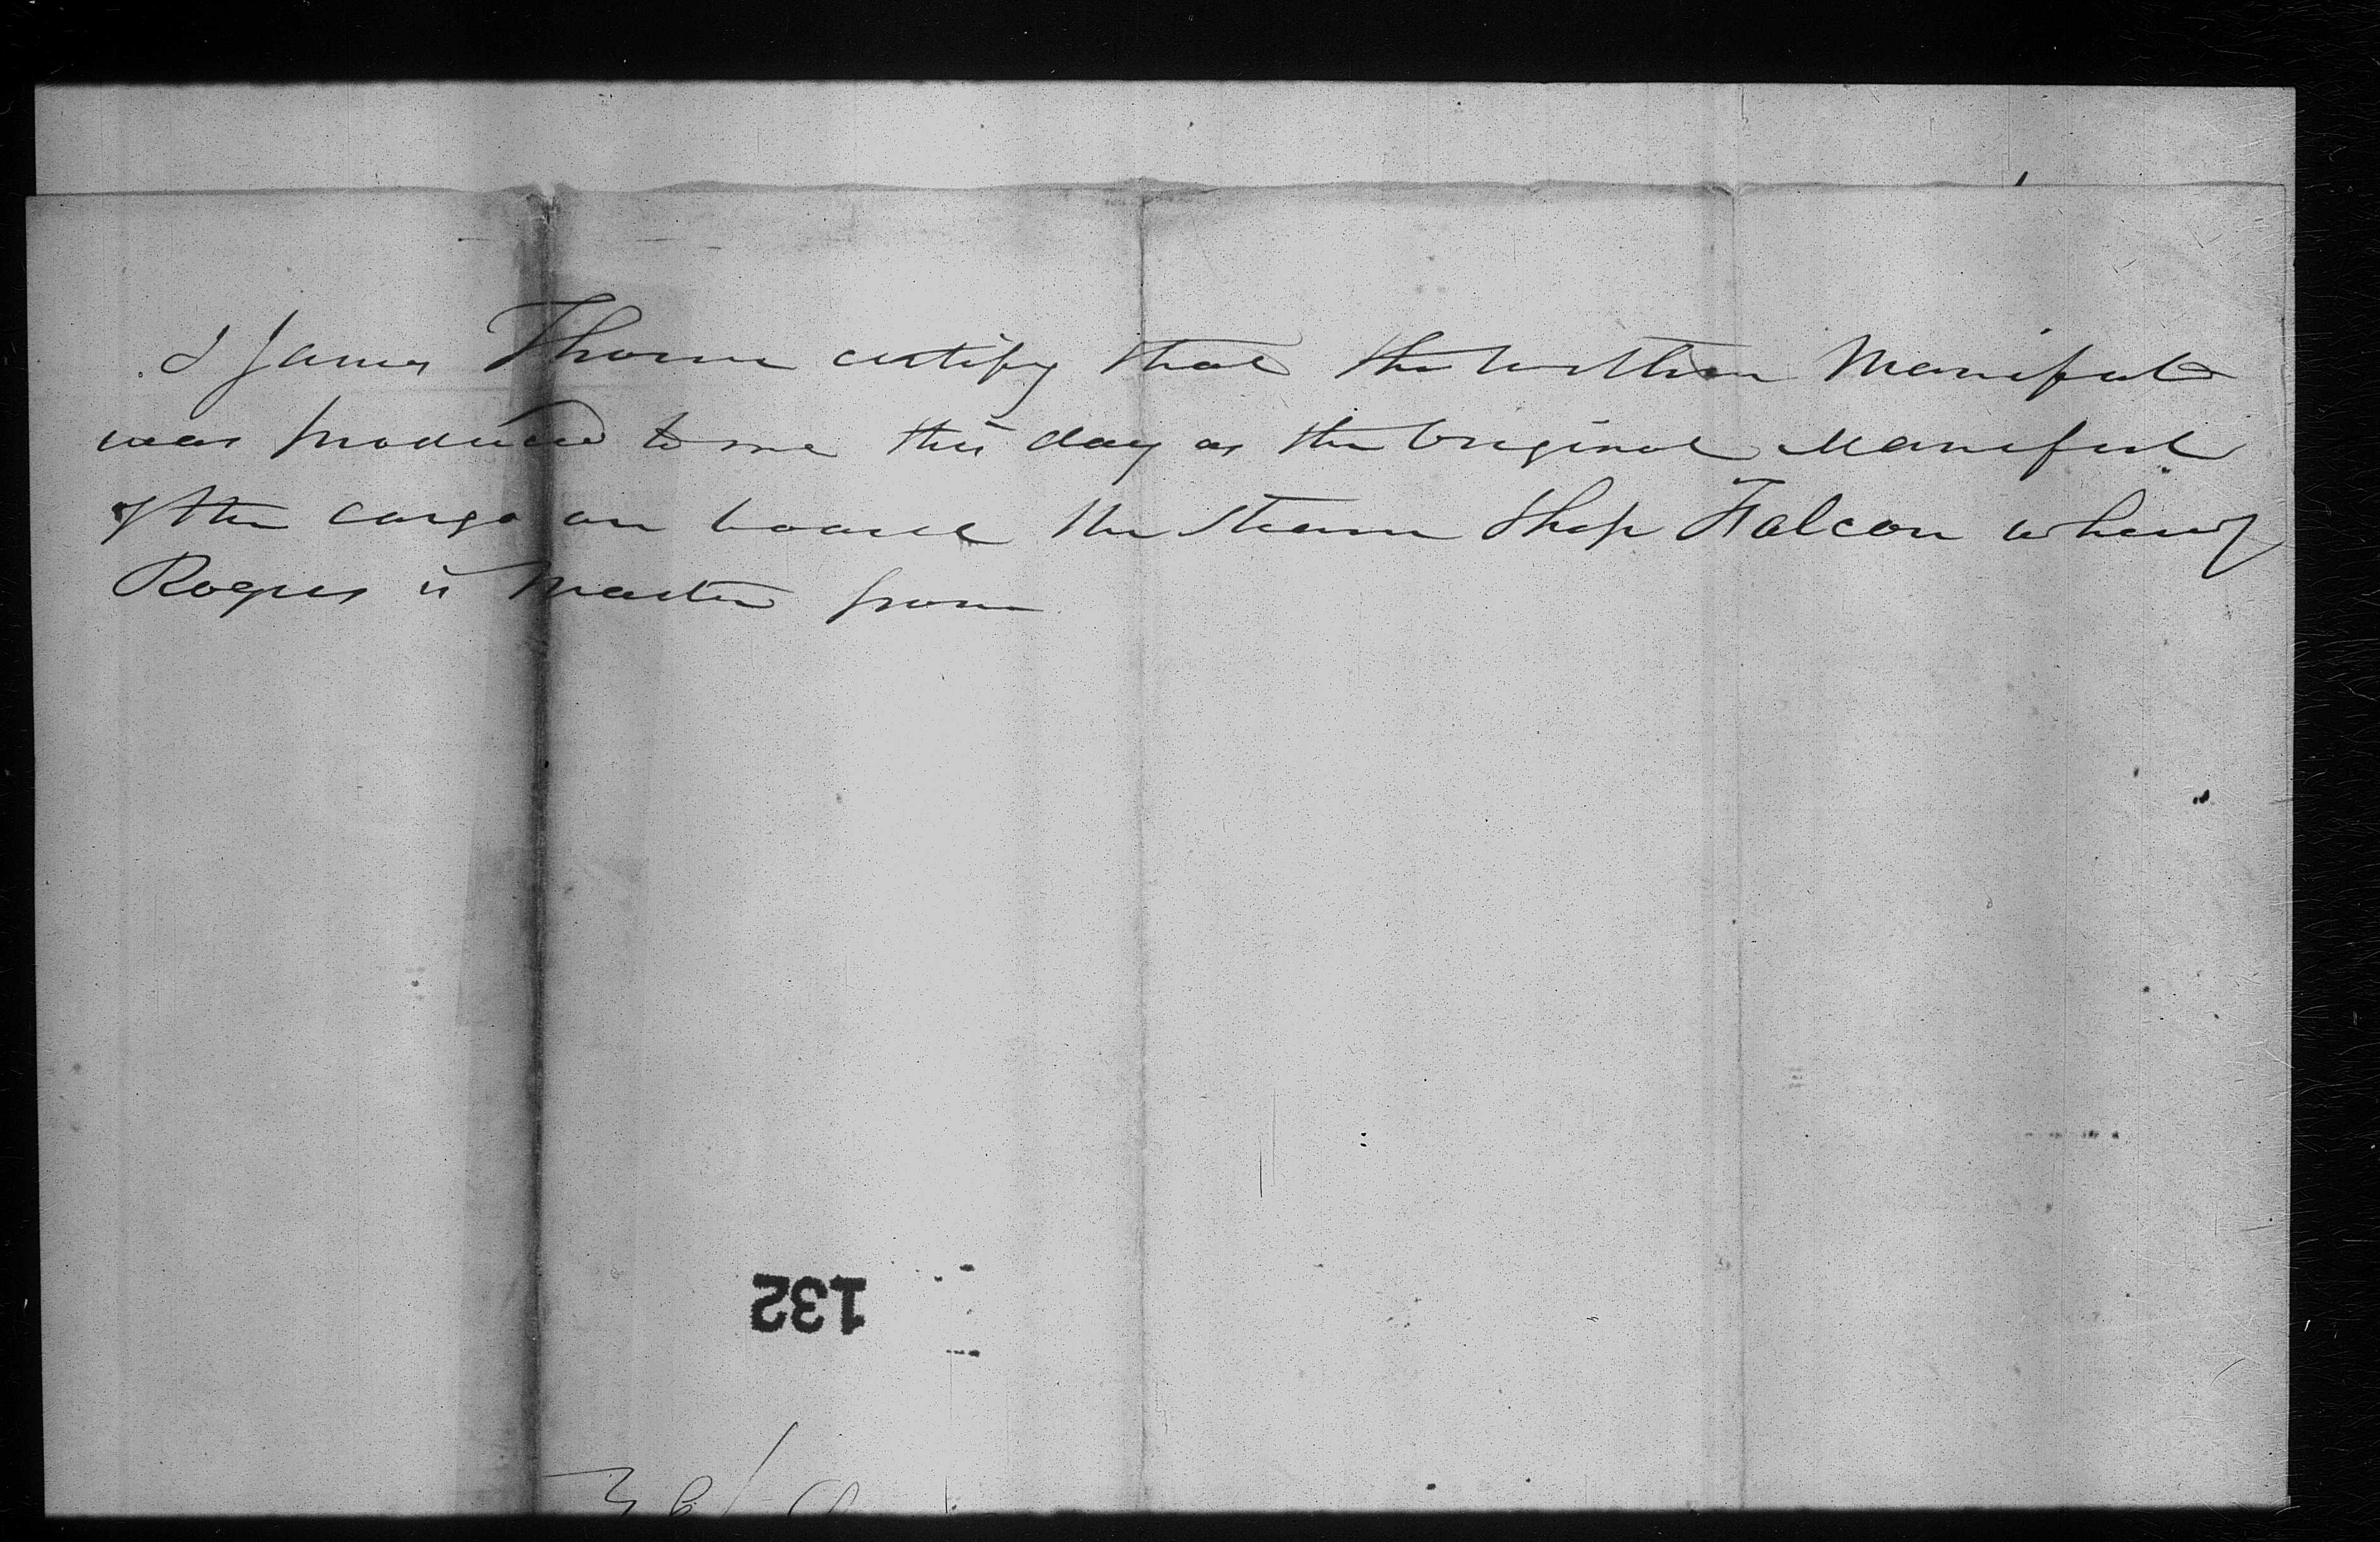 I James Thorne certify that the within Manifest
was produced to me this day as the Original Manifest
of the cargo on board the Steam Ship Falcon whereof
Rogers is Master from
132